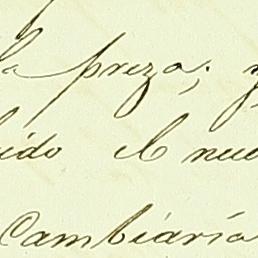 la preza; y
ido el nue
Cambiaría